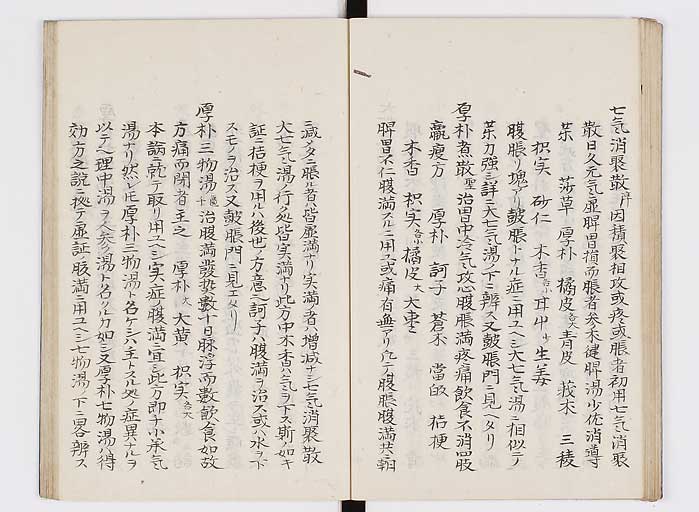 七氣消聚散 因積聚相攻或疼或脹者初用七氣消聚
散日久元氣虛脾胃損而脹者參朮健脾湯少佐消導
莎草 厚朴 橘皮 青皮 莪朮 三稜
枳実 砂仁 木香 甘艸 生姜
腹脹ノ塊アリ皷脹トナル症ニ用ユヘシ大七氣湯ニ相似テ
藥力強シ詳ニ大七氣湯ノ下ニ辨ス又皷脹門ニ見ヘタリ
厚朴煮散 聖 治胃中冷氣攻心腹脹滿疼痛飲食不消四肢
羸瘦方 厚朴 訶子 蒼朮 當皈 桔梗
木香 枳実 橘皮 大 大棗
脾胃不仁腹滿スルニ用ユ或痛有無アリ凡テ腹脹腹滿共ニ朝
ニ減シ夕ニ脹ル者ハ皆虛滿ナリ実滿者ハ増減ナシ七氣消聚散
大七氣湯ノ行ク処皆実滿ナリ此方中木香ハ氣ヲ下ス斯ノ如キ
証ニ桔梗ヲ用ルハ後世ノ方意也訶子ハ腹滿ヲ治ス或ハ水ヲ下
スモノヲ治ス又皷脹門ニ見エタリ
厚朴三物湯 治腹滿發熱數十日脉浮而數飲食如故
方痛而閉者主之 厚朴 大 大黄 枳実
本論ニ就テ取リ用ユヘシ実症腹滿ニ宜シ此方即チ小承氣
湯ナリ然レトモ厚朴三物湯ト名ケシハ主トスル処ノ症異ナルヲ
以テ也理中湯ヲ人參湯ト名クルカ如シ又厚朴七物湯ハ得
効方之說ニ據テ虛証ノ腹滿ニ用ユヘシ七物湯ノ下ニ畧辨ス